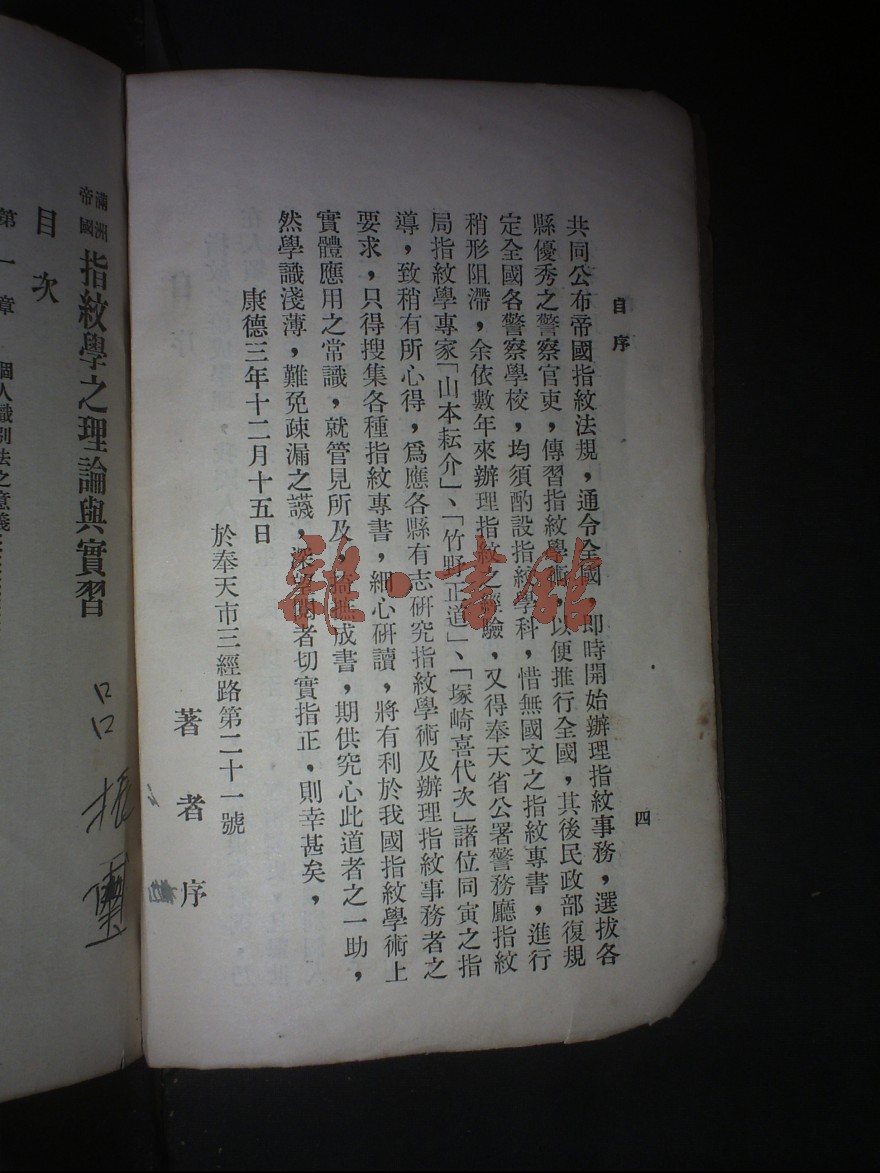 自序
四
共同公布帝國指紋法規，通令全國　即時開始辦理指紋事務，選拔各
縣優秀之警察官吏，傳習指紋學術　以便推行全國，其後民政部復規
定全國各警察學校，均須酌設指紋學科，惜無國文之指紋專書，進行
稍形阻滯，余依數年來辦理指紋之經驗，又得奉天省公署警務廳指紋
局指紋學專家「山本耘介」、「竹野正道」、「塚崎喜代次」諸位同寅之指
導，致稍有所心得，爲應各縣有志研究指紋學術及辦理指紋事務者之
要求，只得搜集各種指紋專書，細心研讀，將有利於我國指紋學術上
實體應用之常識，就管見所及，成書，期供究心此道者之一助，
然學識淺薄，難免疎漏之譏，深望閱者切實指正，則幸甚矣，
康德三年十二月十五日
於奉天市三經路第二十一號
著者序
滿洲帝國指紋學之理論與實習
目次
第一章　個人識別法之意義
雜·書館